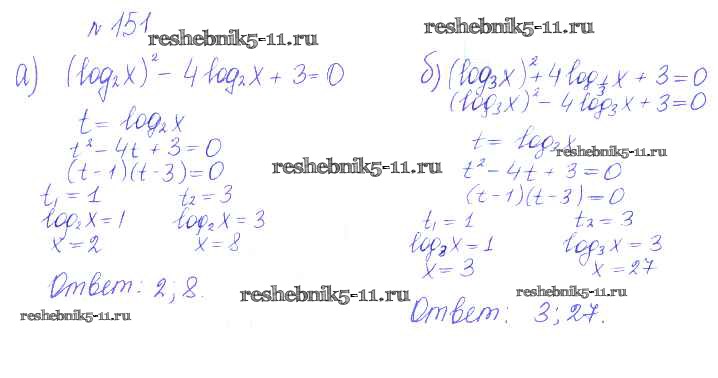 № 151
reshebnik5-11.ru
reshebnik5-11.ru
а) (log₂x)² - 4 log₂x + 3 = 0
t = log₂x
t² - 4t + 3 = 0
(t - 1)(t - 3) = 0
t₁ = 1 t₂ = 3
log₂x = 1 log₂x = 3
x = 2 x = 8
Ответ: 2; 8.
reshebnik5-11.ru
reshebnik5-11.ru
reshebnik5-11.ru
б) (log₃x)² + 4 log_⅓ x + 3 = 0
(log₃x)² - 4 log₃x + 3 = 0
t = log₃x
reshebnik5-11.ru
t² - 4t + 3 = 0
(t - 1)(t - 3) = 0
t₁ = 1 t₂ = 3
log₃x = 1 log₃x = 3
x = 3 x = 27
reshebnik5-11.ru
Ответ: 3; 27.